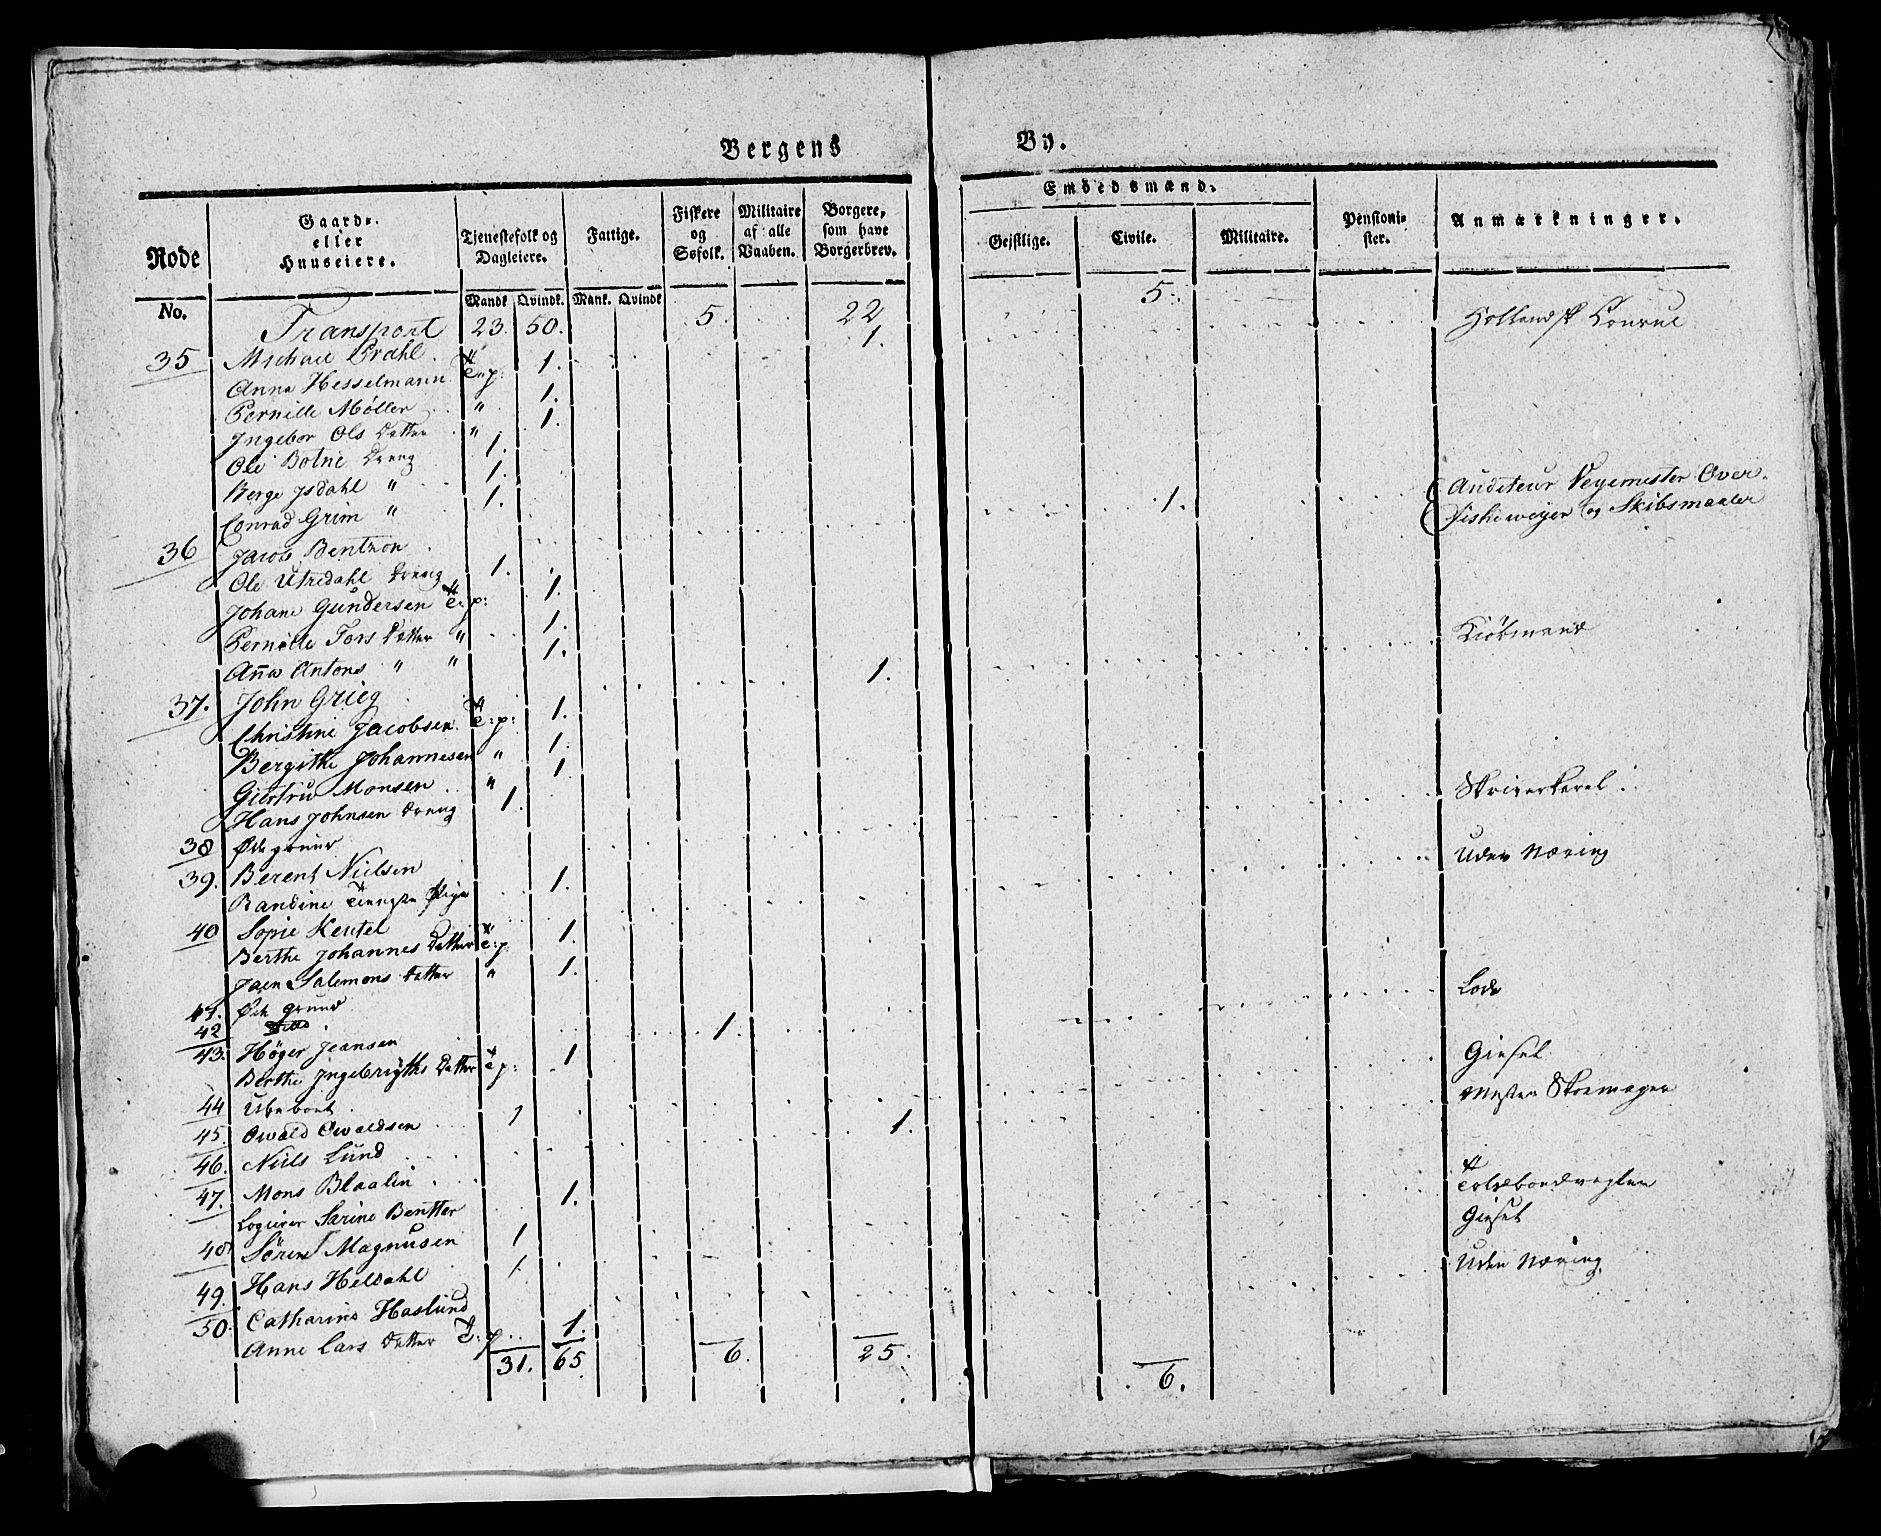 Bergens By.
Embedsmænd.
Rode
Gaard-
eller
Huuseiere.
Tjenestefolk og
Dagleiere.
Fattige.
Fiskere
og
Søfolk.
Militaire
af alle
Vaaben.
Borgere,
som have
Borgerbrev.
Gejstlige. Civile. Militaire.
Pensioni-
ster.
Anmærkninger.
No. Mandk Qvindk. Mank. Qvindk
Transport 23. 50. 5. 22 5.
35 Michael Prahl 1. Hollandsk Consul
Anna Hesselmann T: p: 1.
Pernille Møller " 1.
Ingebor Ols Datter " 1.
Ole Botne Dreng 1.
Berge Isdahl " 1.
Conrad Grim " 1.
36 Jacob Bentzon 1. Auditeur Vejemester Over-
Fiskeveyer og Skibsmaaler
Ole Utredahl Dreng 1.
Johane Gundersen T: p: 1.
Pernille Tors Datter " 1.
Anna Antons " " 1.
37. John Grieg 1. Kiøbmand
Christine Jacobsen T: p: 1.
Bergithe Johannesen " 1.
Giertru Monsen " 1.
Hans Johnsen Dreng 1.
38 Øde grund
39. Berent Nielsen Skriverkarl
Bandine Tieneste Pige 1.
40 Sopie Keutel Uden Næring
Berthe Johannes Datter T: p: 1.
Jaen Salemons Datter " 1.
41. Øde grund
42
43. Høger Jeansen 1. Lods
Berthe Ingebrigths Datter T: p: 1
44 Ubeboet
45. Owald Owaldsen 1 Giesel
46. Niels Lund 1. Mester Skoemager
47. Mons Blaalin
Logierer Sarine Bentter 1.
48 Søren Magnusen 1 Toldbodvagten
49. Hans Heldahl 1 Giesel
50. Catharine Haslund Uden Næring
Anne Lars Datter T: p. 1.
31. 65 6. 25. 6.